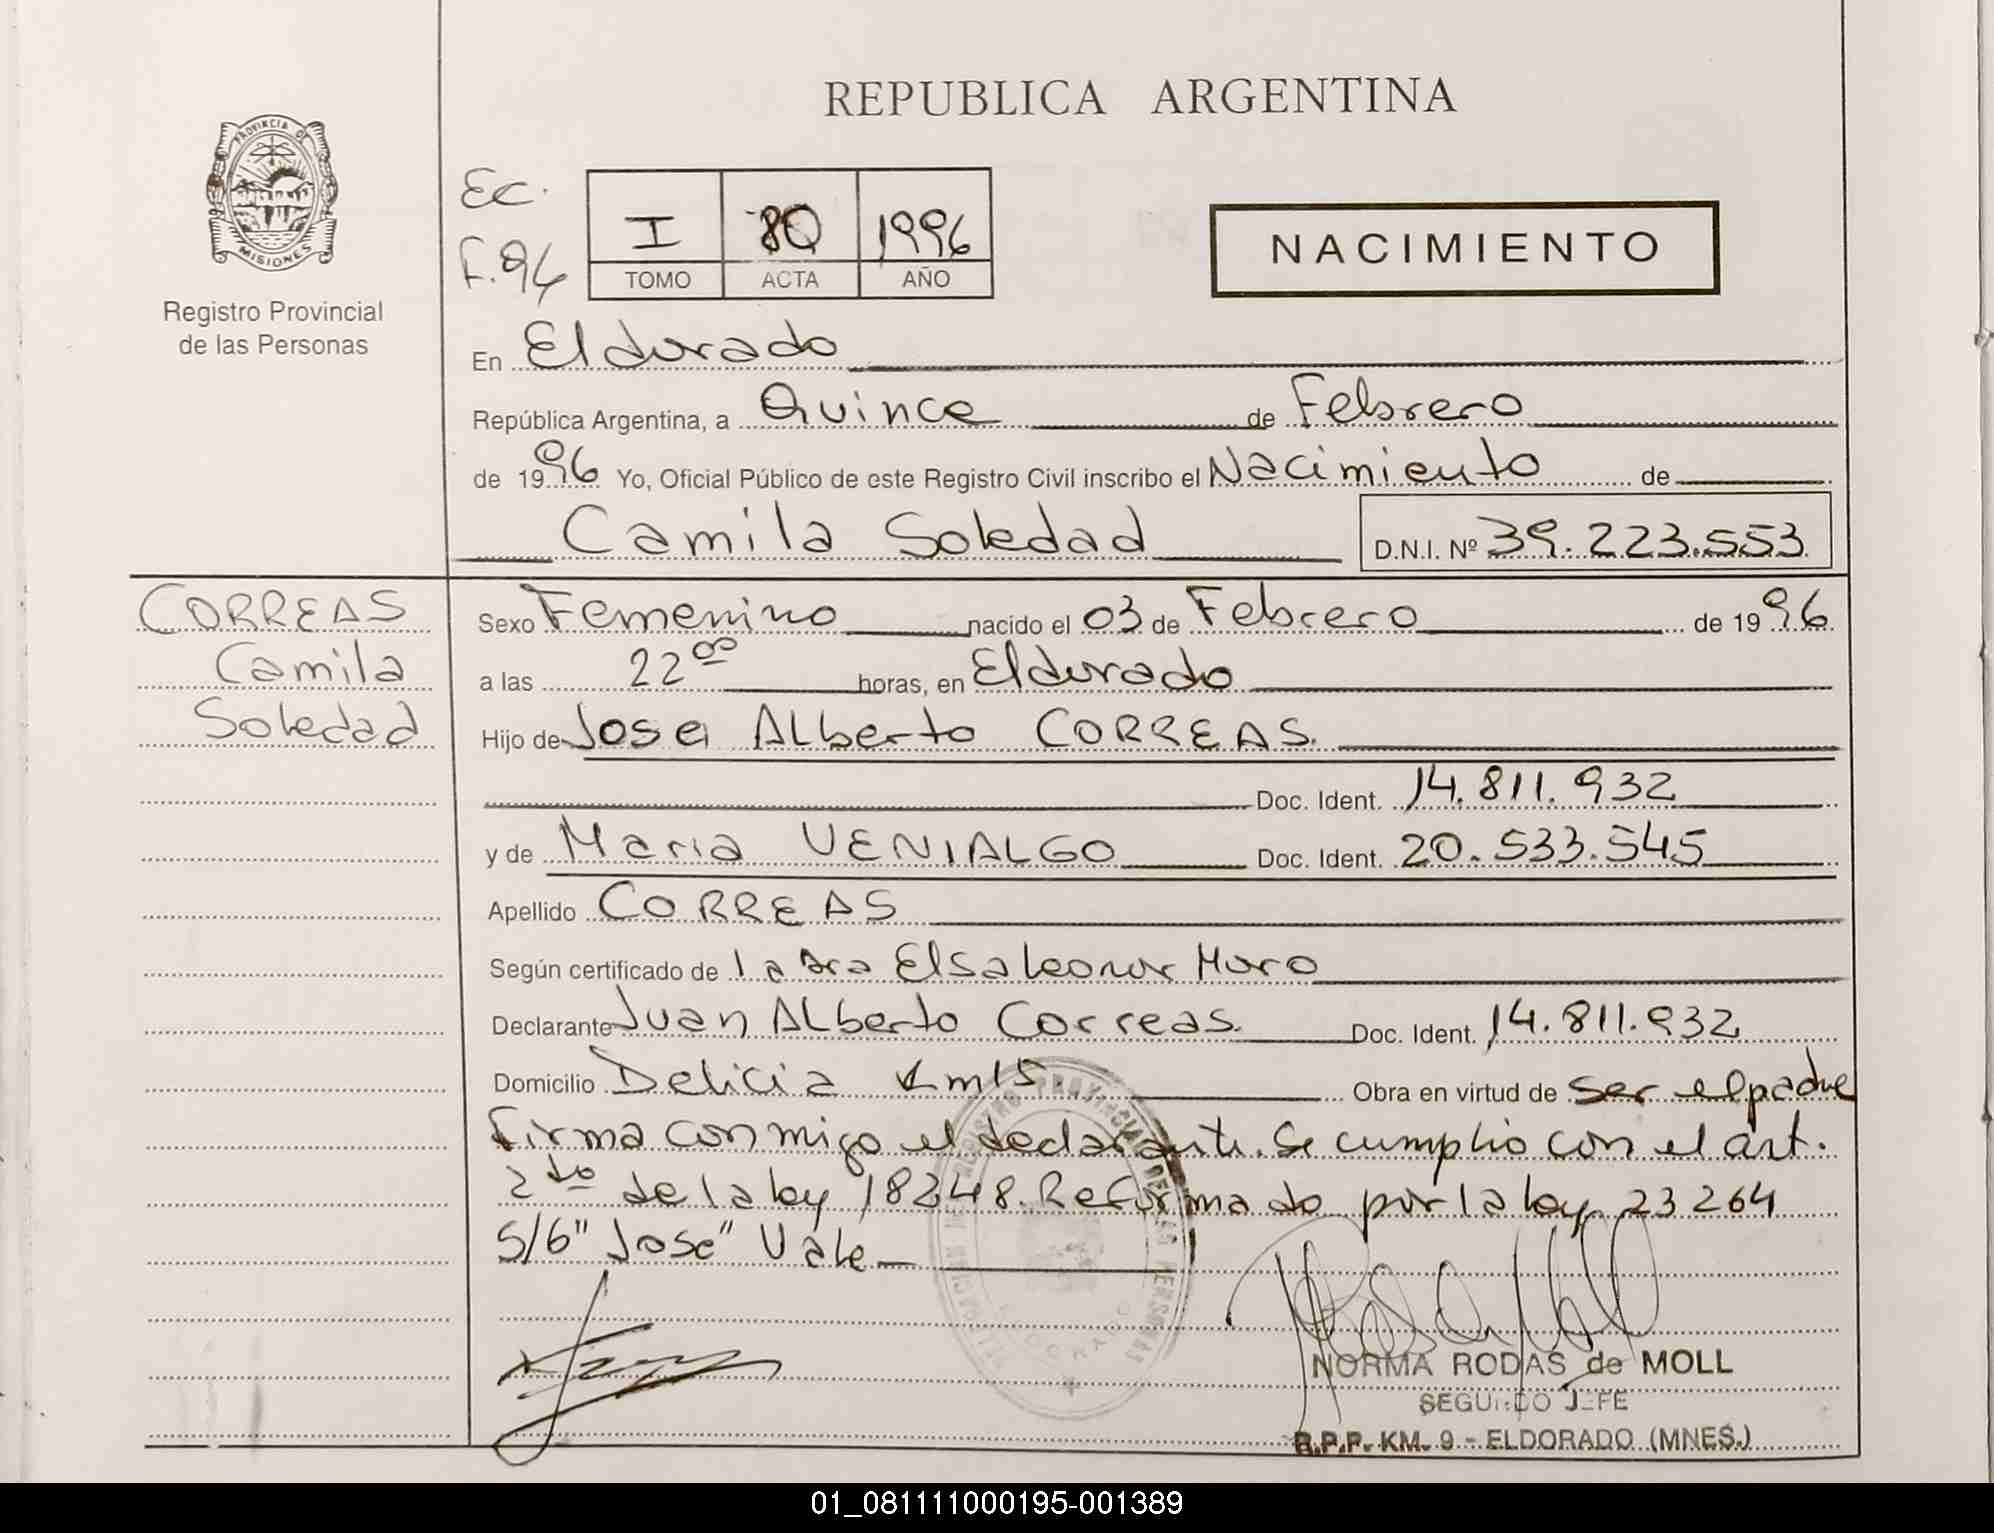 REPUBLICA ARGENTINA
PROVINCIA DE
MISIONES
Registro Provincial
de las Personas
Ec.
F.94
I 80 1996
TOMO ACTA AÑO
NACIMIENTO
En Eldorado
República Argentina, a Quince de Febrero
de 1996 Yo, Oficial Público de este Registro Civil inscribo el Nacimiento de
Camila Soledad D.N.I. Nº 39.223.553
CORREAS
Camila
Soledad
Sexo Femenino nacido el 03 de Febrero de 1996
a las 22 00 horas, en Eldorado
Hijo de Jose Alberto CORREAS.
Doc. Ident. 14.811.932
y de Maria VENIALGO Doc. Ident. 20.533.545
Apellido CORREAS
Según certificado de la Dra Elsa Leonor Muro
Declarante Juan Alberto Correas. Doc. Ident. 14.811.932
Domicilio Delicia Km 15. Obra en virtud de ser el padre
Firma conmigo el declarante. Se cumplio con el art.
2do de la ley 18248. Reformado por la ley 23264
S/6" Jose" Vale
REGISTRO PROVINCIAL DE LAS PERSONAS
NORMA RODAS de MOLL
SEGUNDO JEFE
R.P.P. KM. 9 - ELDORADO (MNES.)
01_081111000195-001389